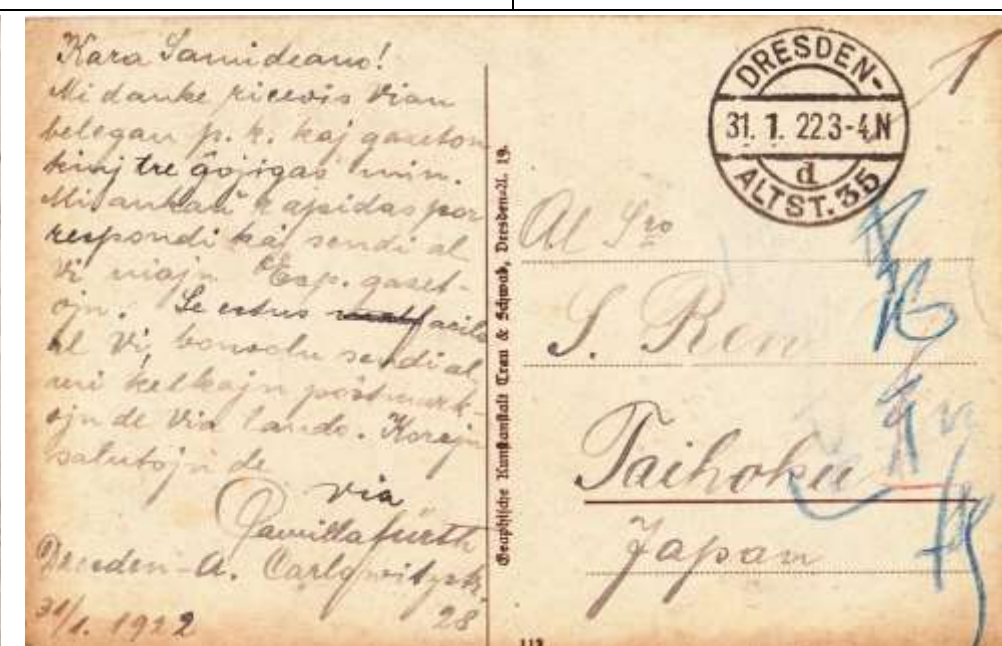 Kara Samideano!
Mi danke ricevis Vian
belegan p. k. kaj gazeton
kiuj tre ĝojigas min.
Mi ankaŭ rapidas por
respondi kaj sendi al
Vi niajn Esp. gazet-
ojn. Se estus facile
al Vi, bonvolu sendi al
mi kelkajn poŝtmark-
ojn de Via lando. Korajn
salutojn de
via
Camilla Fürth
Dresden-A. Carlowitzstr.
31/1. 1922 28
Graphische Kunstanstalt Trau & Schwab, Dresden-A. 19.
113
DRESDEN-
31. 1. 22 3-4 N
d
ALTST. 35
Al Sro
S. Ren
Taihoku
Japan